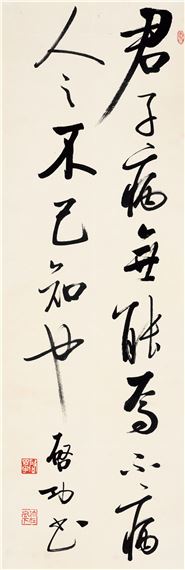 君子病無能焉不病
人之不己知也
啓功書